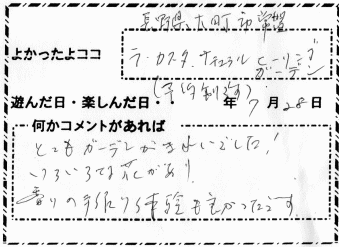 長野県大町市常盤
よかったよココ
ラ・カスタ ナチュラル ヒーリング
ガーデン
(予約制です)
遊んだ日・楽しんだ日・ 年7月28日
何かコメントがあれば
とてもガーデンがきれいでした!
いろいろな花があり、
香りの手作り体験も良かったです